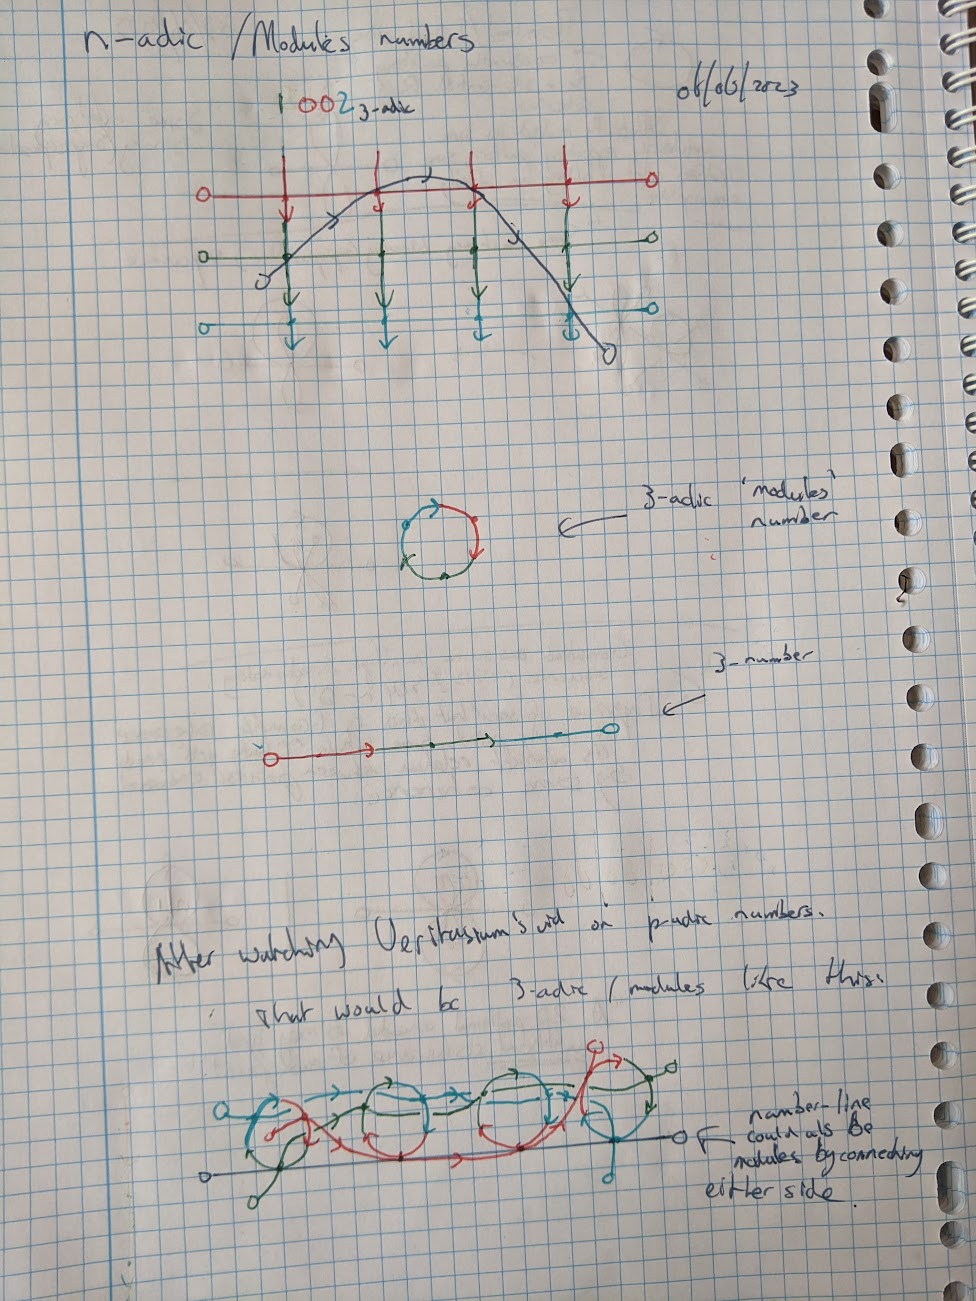 n-adic / Modules numbers
06/06/2023
1002 3-adic
3-adic 'modules'
number
3-number
After watching Veritasium's vid on p-adic numbers.
That would be 3-adic / modules like this.
number-line
could als Be
modules by connecting
either side.